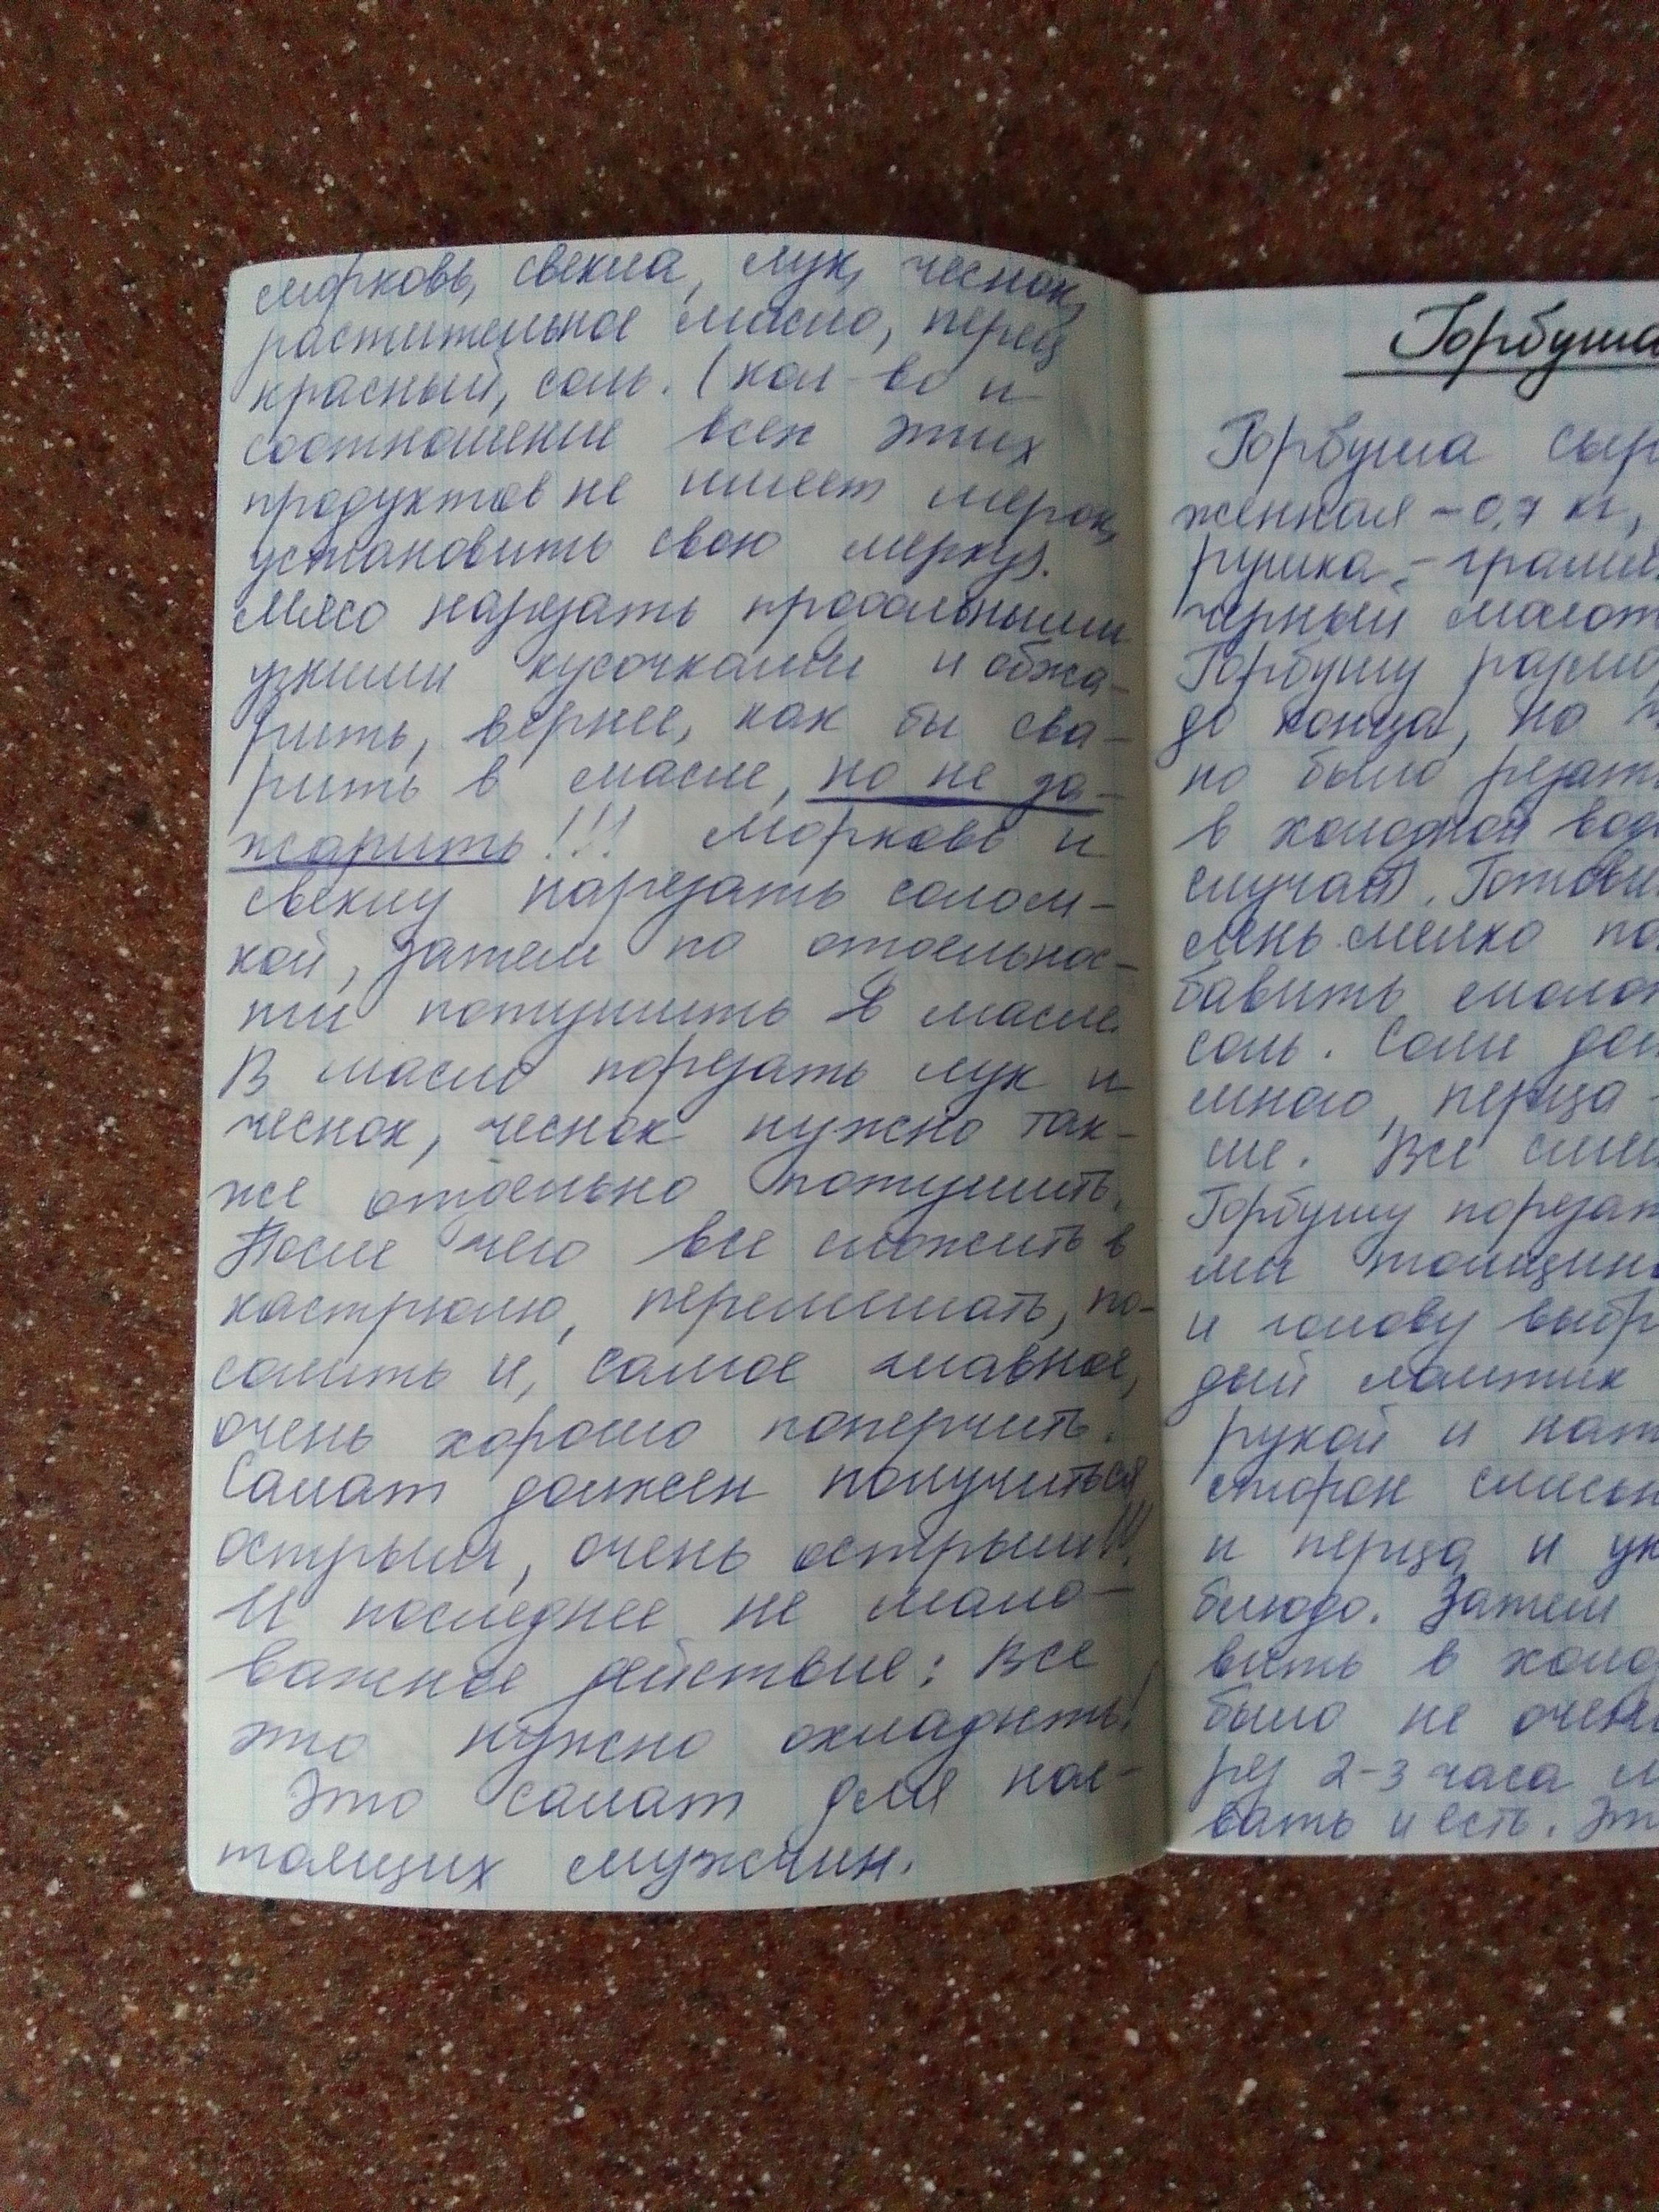 морковь, свекла, лук, чеснок,
растительное масло, перец
красный, соль. (кол-во и
соотношение всех этих
продуктов не имеет мерок,
установить свою мерку).
Мясо нарезать продольными
узкими кусочками и обжа-
рить, вернее, как бы сва-
рить в масле, но не за-
жарить!!! Морковь и
свеклу нарезать солом-
кой, затем по отдельнос-
ти потушить в масле.
В масло порезать лук и
чеснок, чеснок нужно так-
же отдельно потушить.
После чего все сложить в
кастрюлю, перемешать, по-
солить и, самое главное,
очень хорошо поперчить.
Салат должен получиться
острым, очень острым!!!
И последнее не мало-
важное действие: Все
это нужно охладить!
Это салат для нас-
тоящих мужчин.
Горбуша
Горбуша сыр
женная - 0,7 кг,
рушка - грамм
черный молот
Горбушу размо
до конца, но
но было резат
в холодной вод
случая). Готови
лень мелко по
бавить молот
соль. Соли дол
много, перца -
ше. Все сме
Горбушу порезат
ми толщино
и голову выбр
дый ломтик
рукой и нат
сторон смесь
и перца и ук
блюдо. Затем
вить в холод
было не очен
рез 2-3 часа м
вать и есть. Эт